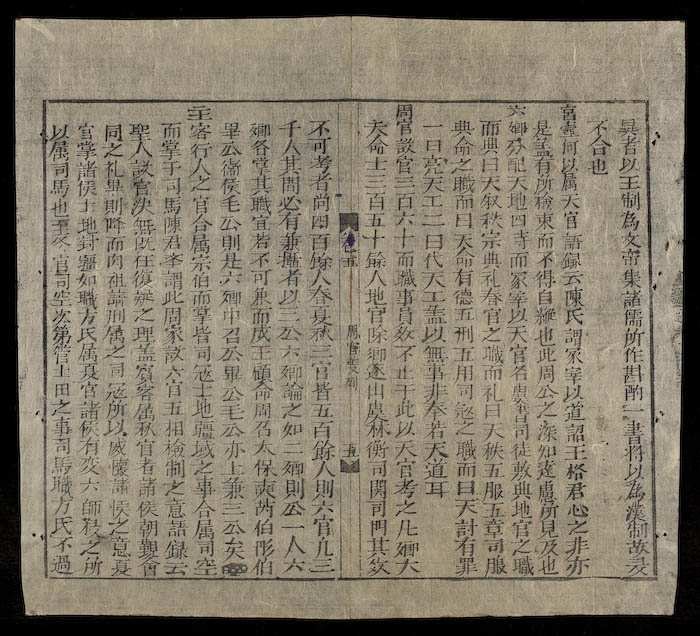 異者以王制為文帝集諸儒所作斟酌一書將以為漢制故
不合也
宮壼何以属天官語録云陳氏謂冢宰以道詔王格君心之非亦
是盖有所檢束而不得自縱也此周公之深知逺慮所見及也
六卿分配天地四時而冢宰以天官名虞書司徒敷典地官之職
而典曰天叙秩宗典礼春官之職而礼曰天秩五服五章司服
典命之職而曰天命有德五刑五用司寇之職而曰天討有罪
一曰亮天工二曰代天工盖以無事非奉若天道耳
周官設官三百六十而職事員数不止于此以天官考之凡卿大
夫命士三百五十餘人地官除鄉遂山虞林衡司関司門其数
不可考者尚四百餘人春夏秋三官皆五百餘人則六官凡三
千人其間必有兼攝者以三公六卿論之如二卿則公一人六
卿各掌其職宜若不可兼而成王顧命周召太保奭芮伯彤伯
畢公衞侯毛公則是六卿中召公畢公毛公亦上兼三公矣
主客行人之官合属宗伯而掌皆司寇土地疆域之事合属司空
而掌于司馬陳君李謂此周家設六官互相檢制之意語録云
聖人設官决無往復疑之理盖賓客属秋官者諸侯朝覲會
同之礼畢則降而肉袒請刑属之司冦所以威懐諸侯之意夏
官掌諸侯土地封疆如職方氏属夏官諸侯有変六師移之所
以属司馬也至冬官司空次第管土田之事司馬職方氏不過